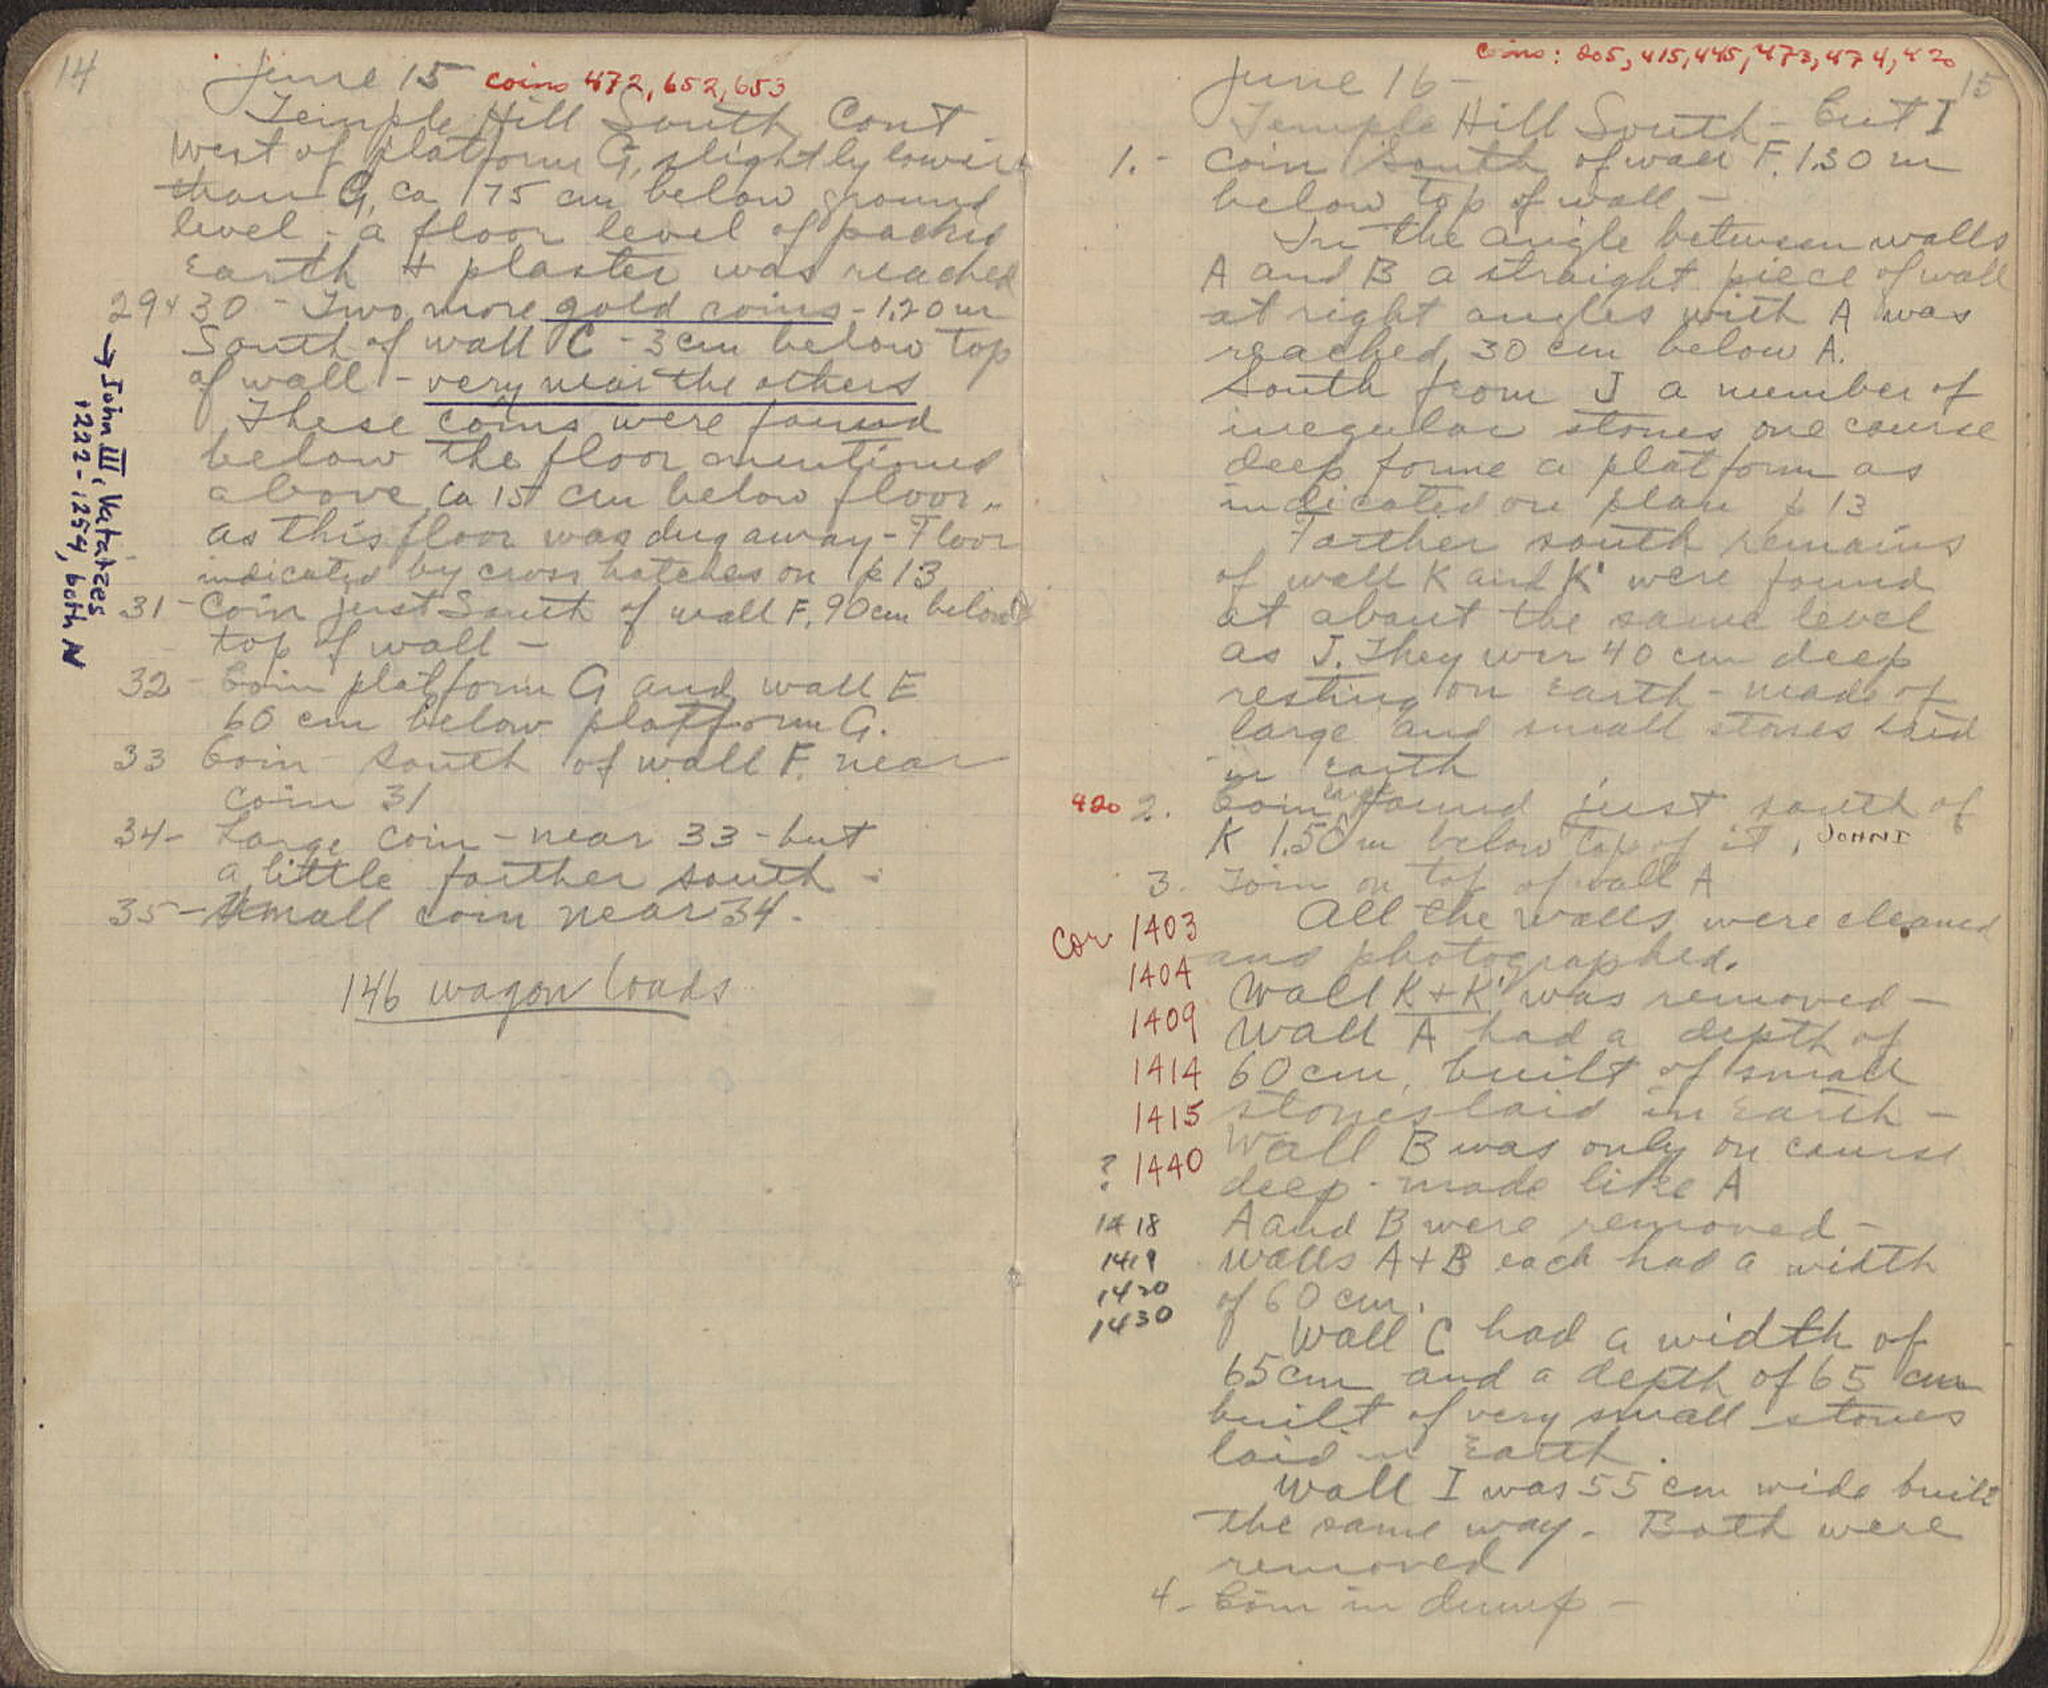 14
June 15 coins 472, 652, 653
Temple Hill South Cont
West of platform G, slightly lower
than G, ca 175 cm below ground
level - a floor level of packed
earth + plaster was reached
29 + 30 - Two more gold coins - 1.20 m
South of wall C - 3 cm below top
of wall - very near the others
→ John III, Vatatzes
1222-1254, both N
These coins were found
below the floor mentioned
above, ca 15 cm below floor,
as this floor was dug away - Floor
indicated by cross hatches on p 13
31 - Coin just South of wall F. 90 cm below
top of wall -
32 - Coin platform G and wall E
60 cm below platform G.
33 Coin - south of wall F. near
coin 31
34 - Large coin - near 33 - but
a little farther south -
35 - Small coin near 34 -
146 wagon loads
coins: 205, 415, 445, 473, 474, 420
June 16 -
15
Temple Hill South - Cut I
1. - Coin South of wall F. 1.30 m
below top of wall -
In the angle between walls
A and B a straight piece of wall
at right angles with A was
reached, 30 cm below A.
South from J a number of
irregular stones one course
deep forme a platform as
indicated on plan p 13
Farther south remains
of wall K and K' were found
at about the same level
as J. They wer 40 cm deep
resting on earth - made of
large and small stones laid
in earth
420 2. Coin was found just south of
K 1.50 m below top of it, JOHN I
3. Coin on top of wall A
All the walls were cleaned
and photographed.
Cor 1403
1404
1409
1414
1415
? 1440
1418
1419
1420
1430
Wall K + K' was removed -
Wall A had a depth of
60 cm, built of small
stones laid in earth -
Wall B was only on course
deep - made like A
A and B were removed -
Walls A + B each had a width
of 60 cm.
Wall C had a width of
65 cm and a depth of 65 cm
built of very small stones
laid in Earth.
Wall I was 55 cm wide built
the same way - Both were
removed
4 - Coin in dump -